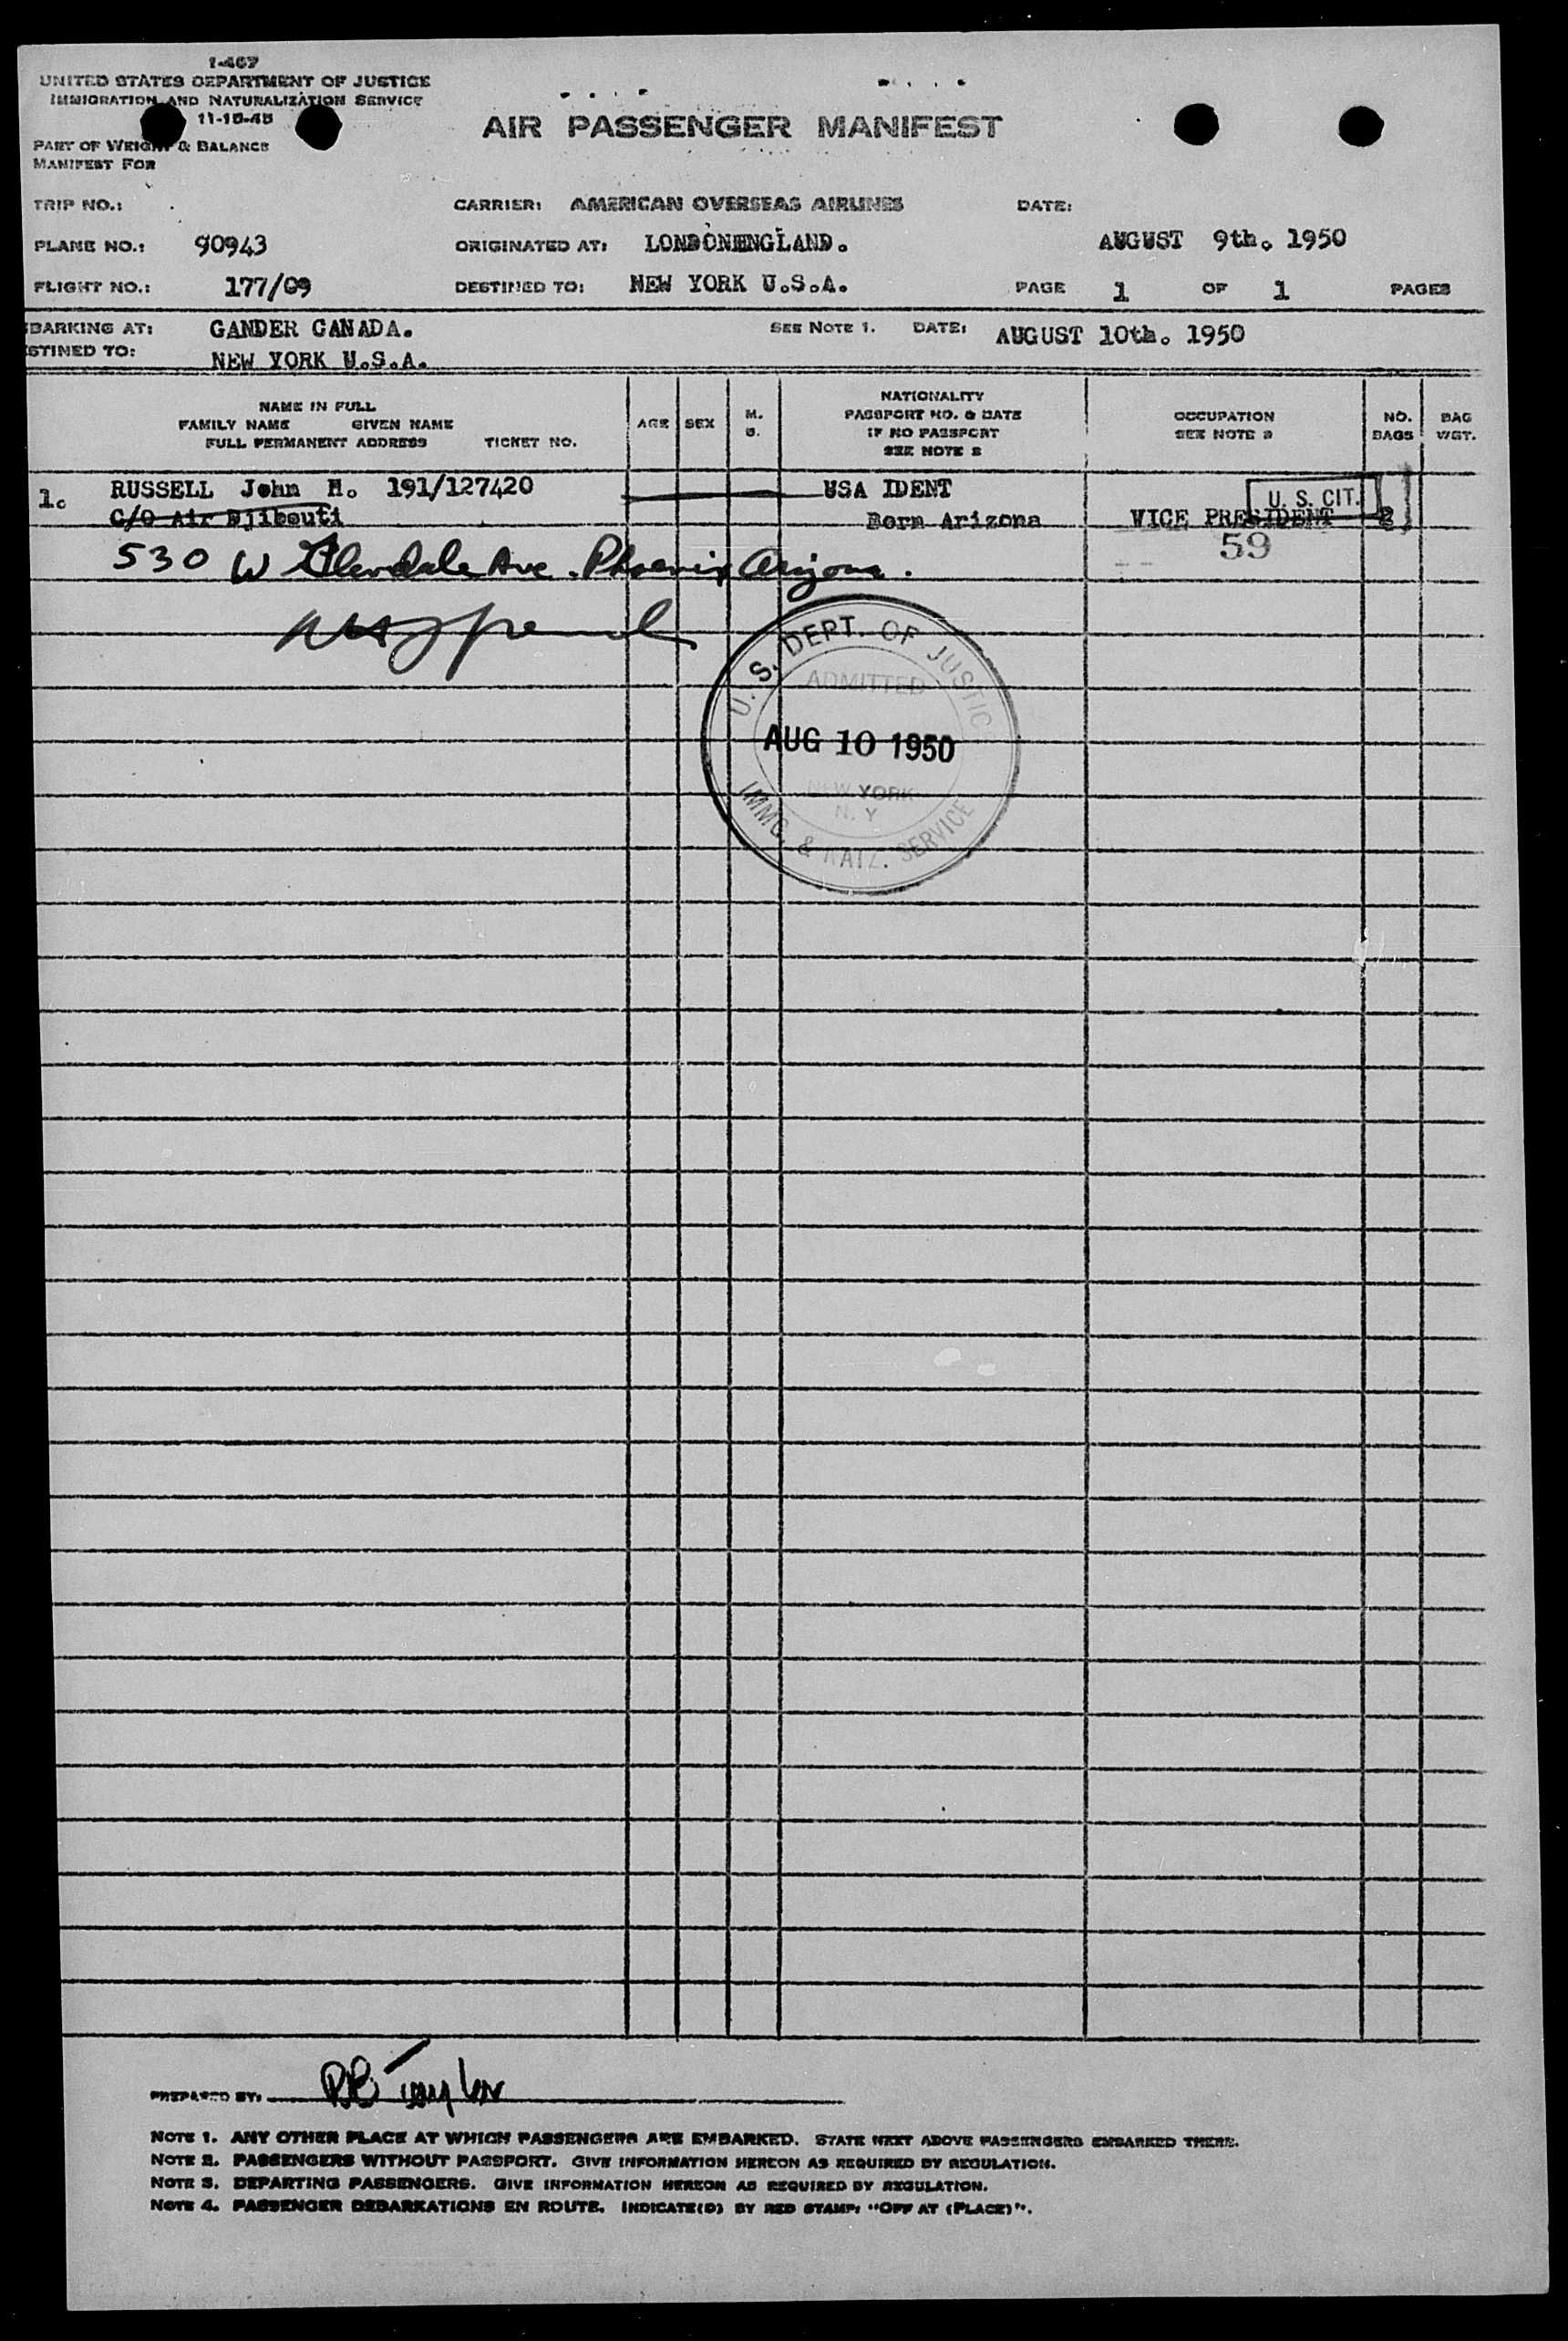 1-467
UNITED STATES DEPARTMENT OF JUSTICE
IMMIGRATION AND NATURALIZATION SERVICE
11-15-45
PART OF WEIGHT & BALANCE
MANIFEST FOR
AIR PASSENGER MANIFEST
TRIP NO.: CARRIER: AMERICAN OVERSEAS AIRLINES DATE:
PLANE NO.: 90943 ORIGINATED AT: LONDONENGLAND. AUGUST 9th. 1950
FLIGHT NO.: 177/09 DESTINED TO: NEW YORK U.S.A. PAGE 1 OF 1 PAGES
BARKING AT: GANDER CANADA. SEE NOTE 1. DATE: AUGUST 10th. 1950
STINED TO: NEW YORK U.S.A.
NAME IN FULL
FAMILY NAME GIVEN NAME
FULL PERMANENT ADDRESS TICKET NO.
AGE
SEX
M.
S.
NATIONALITY
PASSPORT NO. & DATE
IF NO PASSPORT
SEE NOTE 2
OCCUPATION
SEE NOTE 3
NO.
BAGS
BAG
WGT.
1. RUSSELL John H. 191/127420 USA IDENT U. S. CIT.
C/O Air Djibouti Born Arizona VICE PRESIDENT 2
59
530 W Glendale Ave. Phoenix Arizona.
U. S. DEPT. OF JUSTICE
ADMITTED
AUG 10 1950
NEW YORK
N. Y
IMMG. & NATZ. SERVICE
PREPARED BY: RE Taylor
NOTE 1. ANY OTHER PLACE AT WHICH PASSENGERS ARE EMBARKED. STATE NEXT ABOVE PASSENGERS EMBARKED THERE.
NOTE 2. PASSENGERS WITHOUT PASSPORT. GIVE INFORMATION HEREON AS REQUIRED BY REGULATION.
NOTE 3. DEPARTING PASSENGERS. GIVE INFORMATION HEREON AS REQUIRED BY REGULATION.
NOTE 4. PASSENGER DEBARKATIONS EN ROUTE. INDICATE(D) BY RED STAMP: "OFF AT (PLACE)".